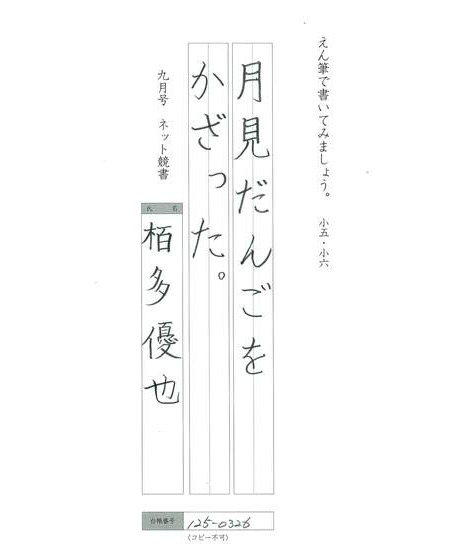 えん筆で書いてみましょう。 小五・小六
月見だんごを
かざった。
九月号 ネット競書
氏名
栢多優也
台帳番号 125-0326
(コピー不可)